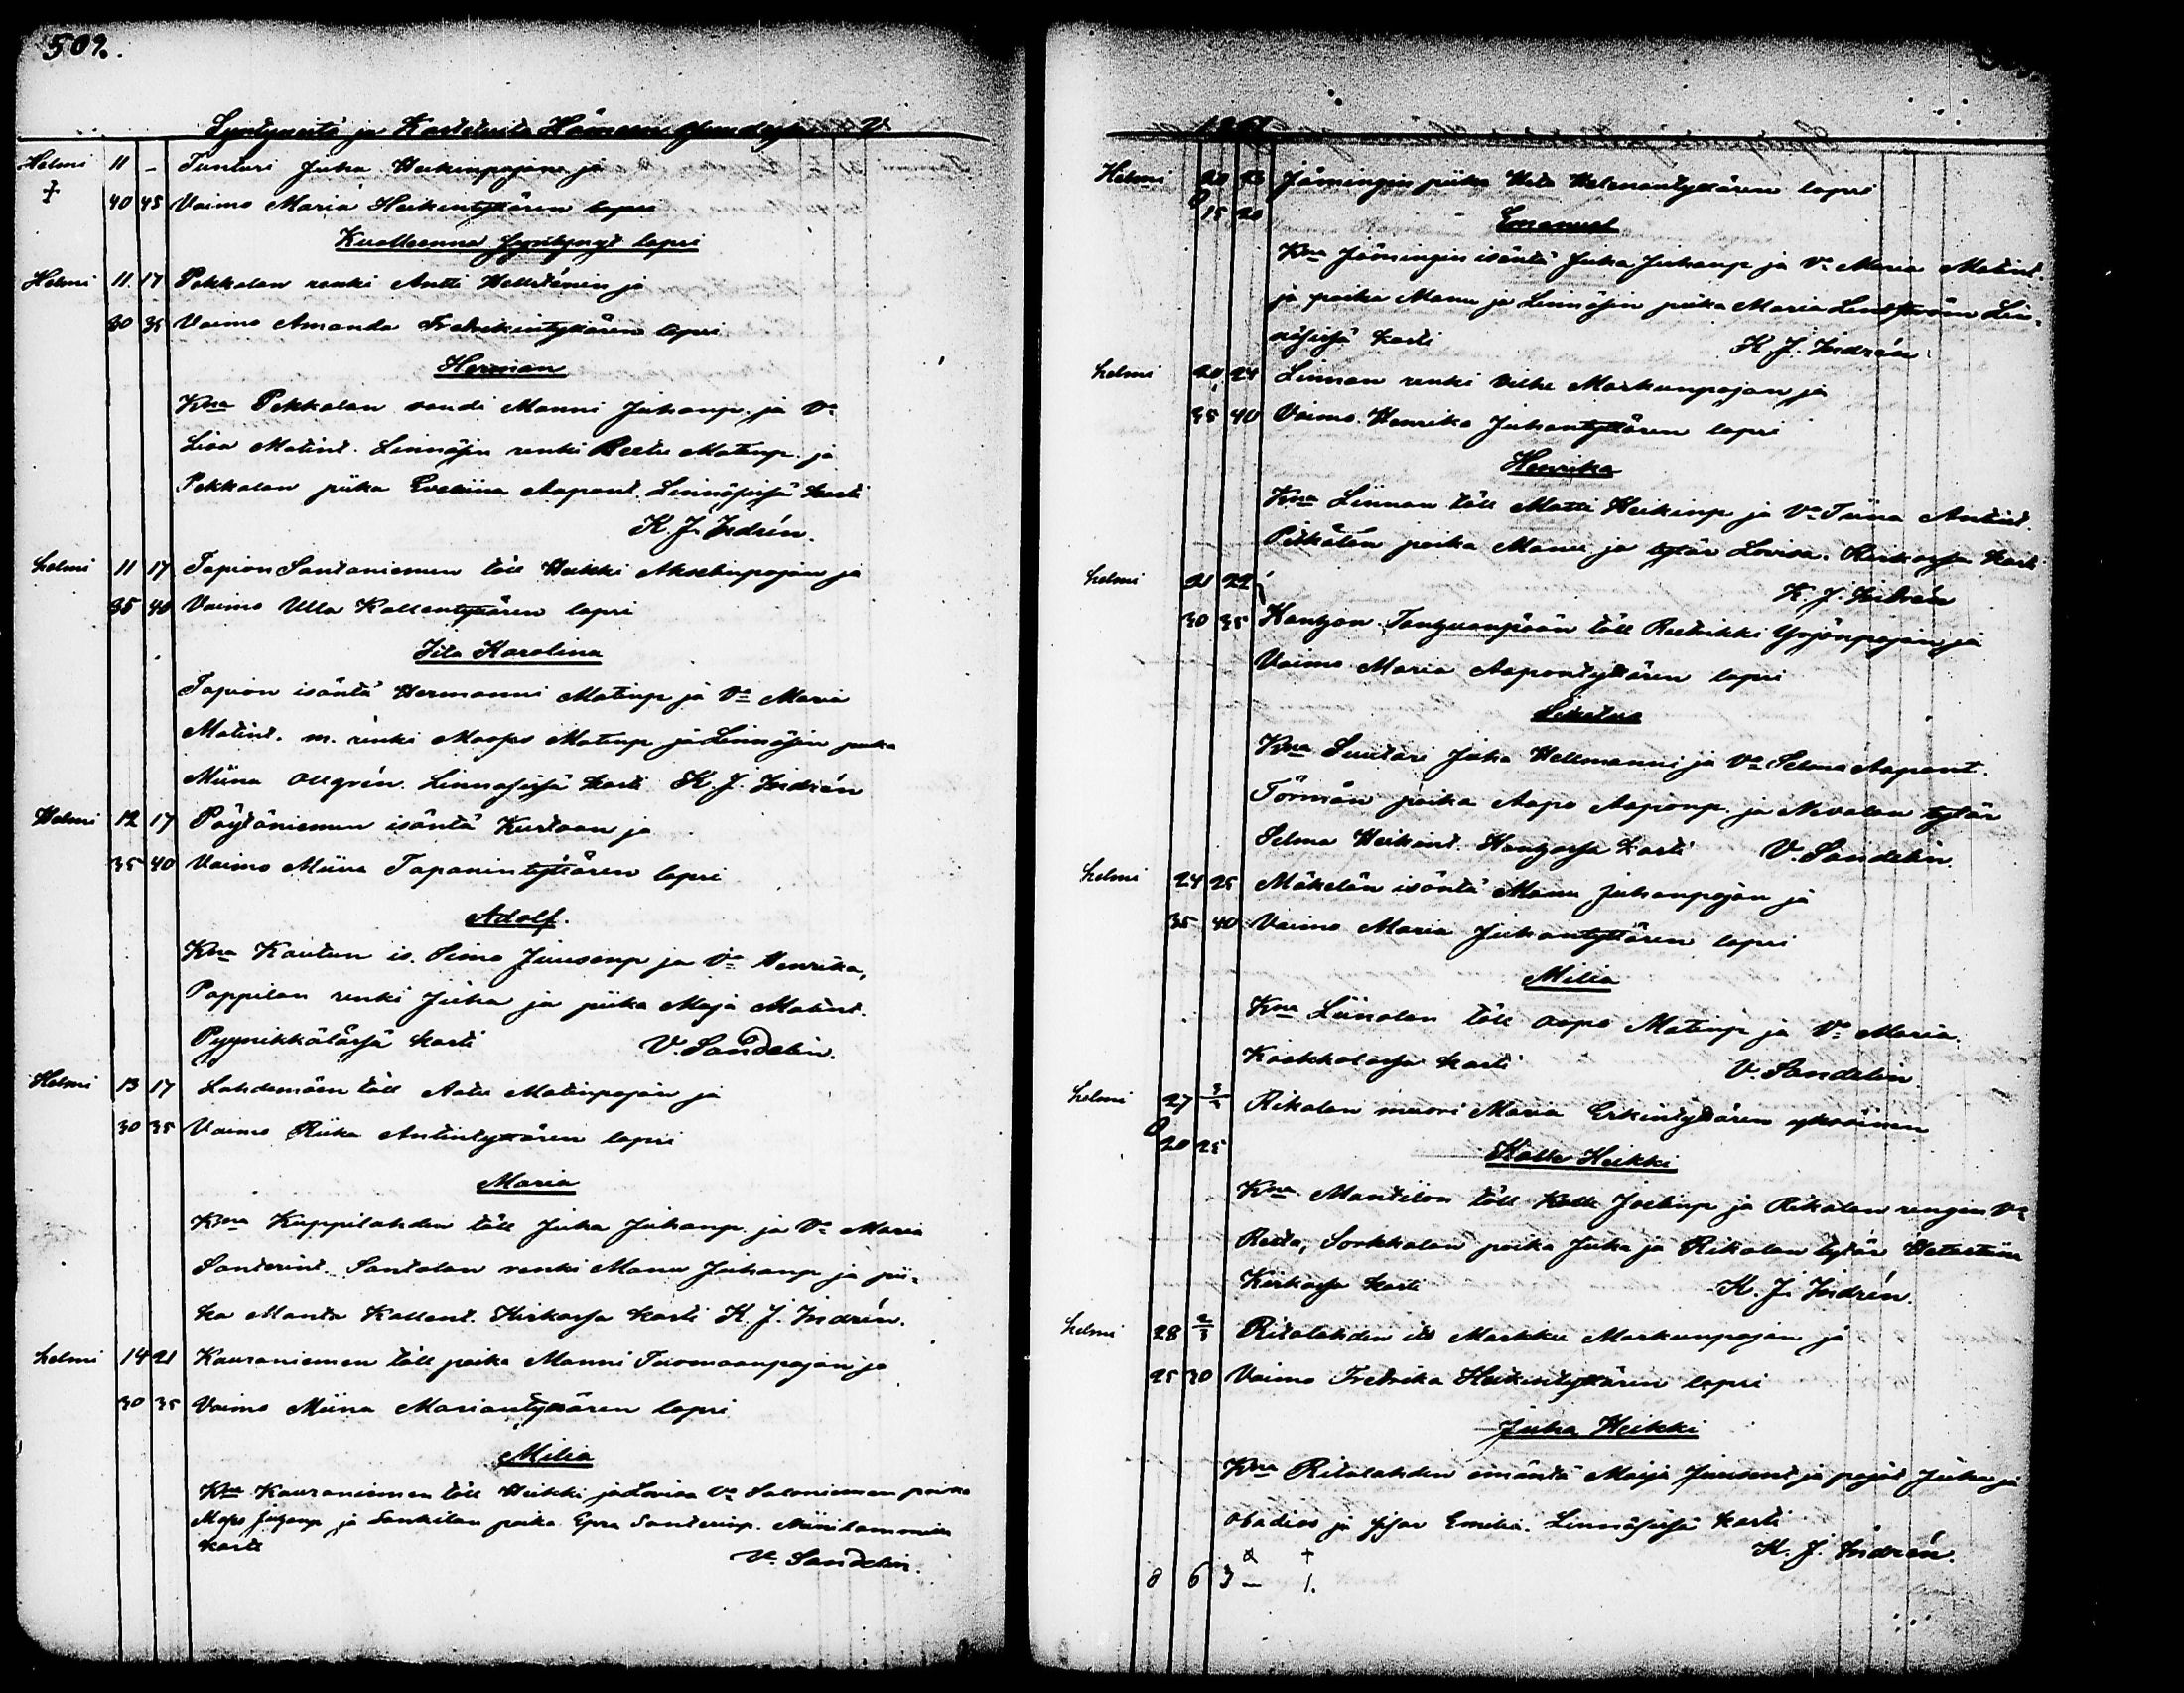 509.
Syntyneitä ja Kastetuita Hämeen
Helmi 11 – Juha Heikinpojan ja
† 40 45 Vaimo Maria Heikintyttären lapsi
Kuolleenna syntynyt lapsi
Helmi 11 17 Pekkalan renki Antti Hellsténin ja
30 35 Vaimo Amanda Fredrikintyttären lapsi
Herman
Kna Pekkalan Manni Juhanp. ja Vo
Liisa Matint. Linnäsin renki Matinp. ja
Pekkalan piika Eveliina Aapont. Linnäsissä kasti
K. J. Indrén.
helmi 11 17 Tapion Santaniemen töll Heikki Akselinpojan ja
35 40 Vaimo Ulla Kallentyttären lapsi
Iita Karolina
Tapion isäntä Hermanni Matinp ja Vo Maria
Matint. m. renki Matinp ja Linnäsin piika
Miina Ollgrén. Linnäsissä kasti K. J. Indrén
Helmi 12 17 Pöytäniemen isäntä Kustaan ja
35 40 Vaimo Miina Tapanintyttären lapsi
Adolf.
Kna Kautun is. Simo Juusenp ja Vo Henrika,
Pappilan renki Juha ja piika Maja Matint.
kasti V. Sandelin.
Helmi 13 17 Lahdenmäen töll Aatu Matinpojan ja
30 35 Vaimo Riika Antintyttären lapsi
Maria
Kna Kuppilahden töll Juha Juhanp. ja Vo Maria
Santerint. Santalan renki Manu Juhanp ja pii=
ka Manta Kallent. Kirkossa kasti K. J. Indrén.
helmi 14 21 Kauraniemen töll poika Manni Tuomaanpojan ja
30 35 Vaimo Miina Mariantyttären lapsi
Milia
Kna Kauraniemen töll Heikki ja Lovisa Vo Saloniemen poika
ja poika Santerinp.
kasti V. Sandelin.
Helmi 20 Jämingin piika Heta Helenantyttären lapsi
15 20
Emanuel
Kna Jämingin isäntä Juha Juhanp ja Vo Maria Matint.
ja poika Manu ja Linnäsin piika Maria Lindström Lin=
näsissä kasti K J. Indrén
helmi 20 24 Linnan renki Ville Markunpojan ja
35 40 Vaimo Henrika Juhantyttären lapsi
Henrika
Kna Linnan töll Matti Heikinp ja Vo Tiina Antint.
poika Manu ja tytär Lovisa. Kirkossa kasti
K. J. Indrén
helmi 21 22
30 35 töll Reetrikki Yrjönpojan ja
Vaimo Maria Aapontyttären lapsi
Kna Suutari Juha Hellmanni ja Vo Selma Aapont.
Törmän poika Aapo Aaponp. ja Nevalan tytär
Selma Heikint. kasti V. Sandelin.
helmi 24 25 Mäkelän isäntä Manu Juhanpojan ja
35 40 Vaimo Maria Juhantyttären lapsi
Milia
Kna Liinalan töll Aapo Matinp ja Vo Maria.
kasti V. Sandelin
helmi 27 3/3 Rikalan muori Maria Erkintyttären
20 25
Kalle Heikki
Kna Mantilan töll Kalle Joelinp ja Rikalan rengin Vo
Reeta, Sorkkalan poika Juha ja Rikalan tytär
Kirkossa kasti K. J. Indrén.
helmi 28 2/3 Ritalahden its Markku Markunpojan ja
25 30 Vaimo Fredrika Heikintyttären lapsi
Juha Heikki
Kna Ritalahden emäntä Maija Juusent ja pojat Juha ja
Obadias ja sisar Emilia. Linnäsissä kasti
K. J. Indrén.
8 6 3 – 1.